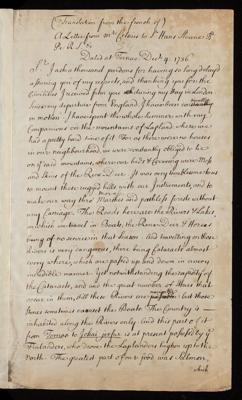 (Translation from the french of)
A Letter from Mr Celsius to Sr Hans Sloane Bt.
Pr. R.S. &c.
Dated at Torneo Decr. 4. 1736
Sr. I ask a thousand pardons for having so long delayed
assuring you of my respects, and thanking you for the
Civilities I received from you during my Stay in London
Since my departure from England I have been
in motion. I have spent the whole Summer with my
Companions on the mountains of Lapland where we
had a pretty hard time of it. For as there were no houses
in our neighbourhood, we were constantly obliged to lie
on of said mountains, where our beds & Covering were Moss
and Skins of the Rain Deer. It was very troublesome to us
to mount these rugged hills with our Instruments, and to
make our way thro' Marshes and pathless forests without
any Carriage. The Roads here are the Rivers & Lakes,
which we travel in Boats, the Raine Deer & Horses
being of no service in that Season. And travelling on these
Rivers is very dangerous, there being Cataracts almost
every where, which are passed up and down in a very
incredible manner. Yet notwithstanding the rapidity of
the Cataracts, and the great number of Stones that
occur in them, still these Rivers are but those
Stones sometimes overset the Boats. This Country is
inhabited along the Rivers only. And this part of it
from Torneo to is at present possessed by ye
Finlanders, who drove the Laplanders higher up to the
North. The greatest part of our food was Salmon,
which